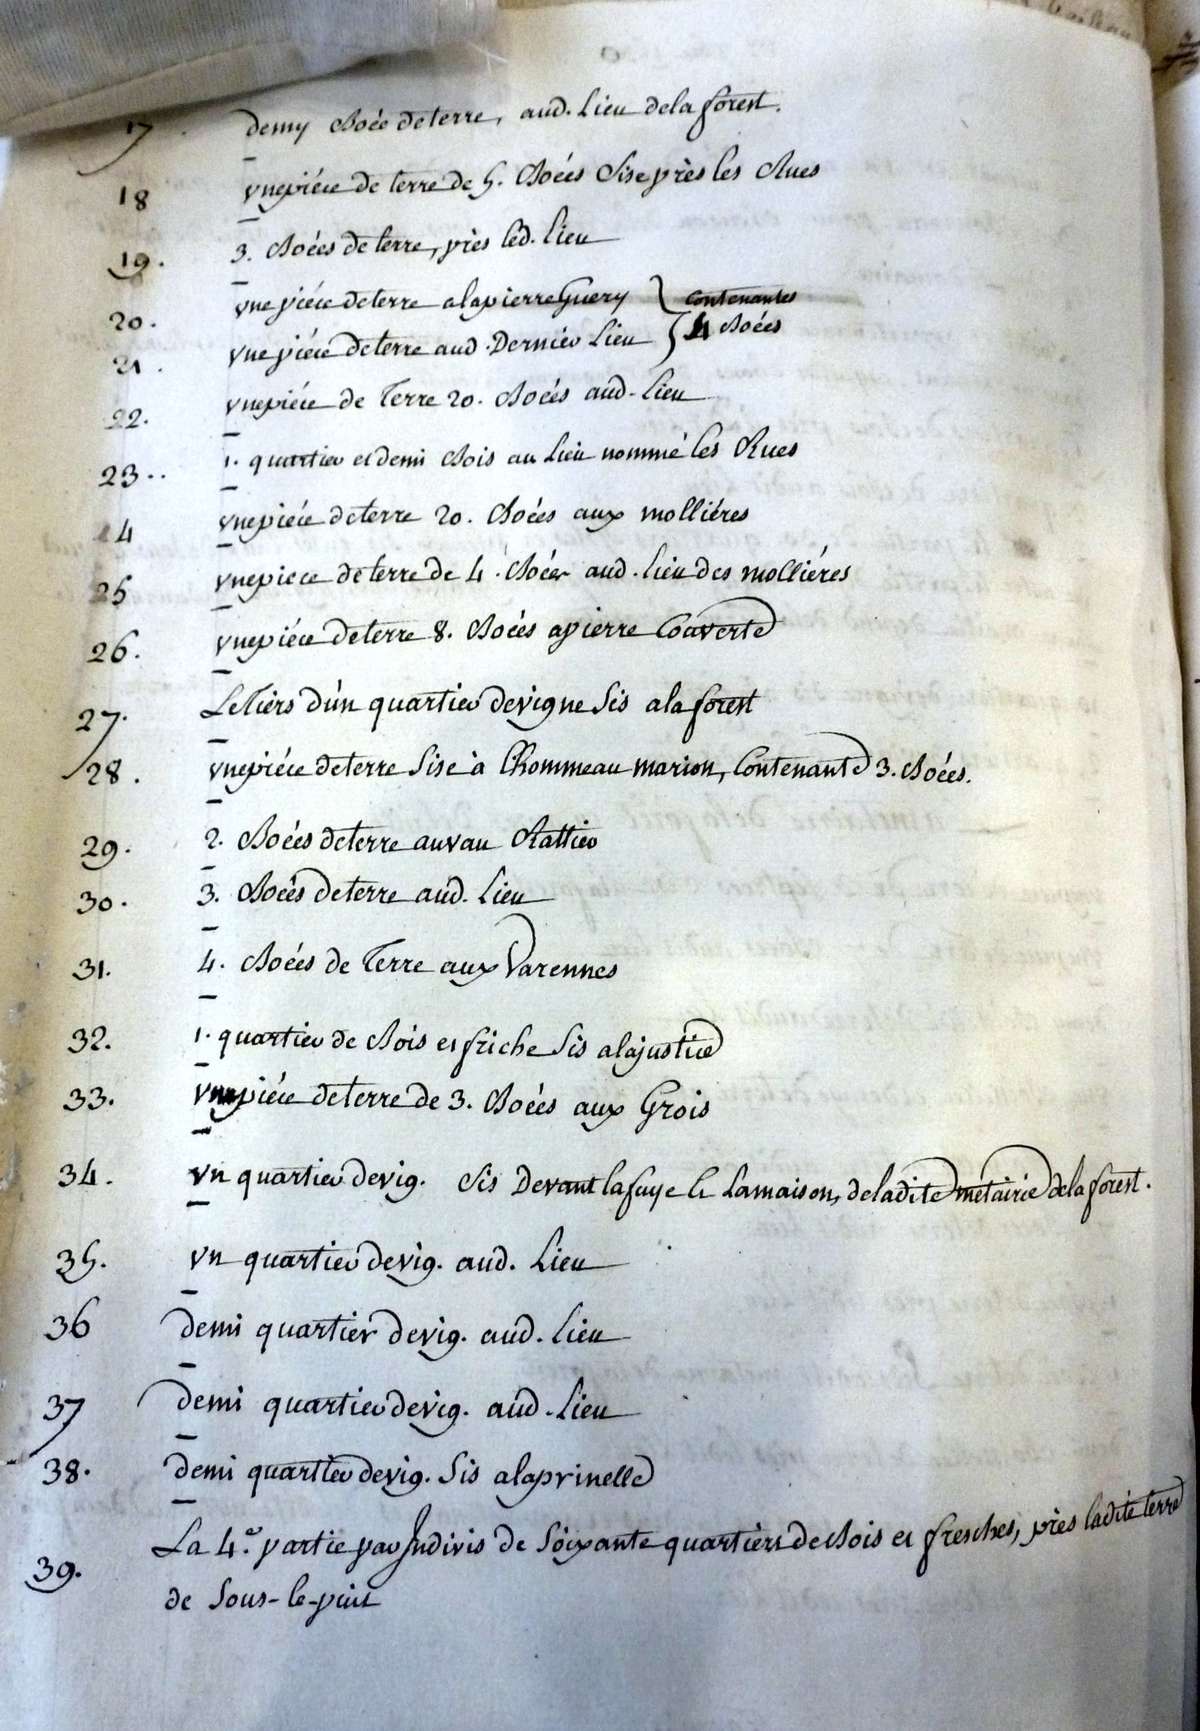 17 demy Boée de terre, aud. Lieu dela forest.
18 vne piéce de terre de 5. Boéés Sise près les Rues
19. 3. Boéés de terre, près led. lieu
20. vne piéce de terre a la pierre Guery } contenantes
21. vne piéce de terre aud. Dernier Lieu } 4 Boéés
22. vne piéce de Terre 20. Boéés aud. Lieu
23.. 1. quartier et demi Bois au Lieu nommé les Rues
24 vne piéce de terre 20. Boéés aux molliéres
25 vne piece de terre de 4. Boéés aud. lieu des molliéres
26. vne piéce de terre 8. Boéés a pierre Couverte
27. Le Tiers d'un quartier de vigne Sis a la forest
28. vne piéce de terre Sise à L'hommeau marion, Contenante 3. Boéés.
29. 2. Boéés de terre au vau Rattier
30. 3. Boéés de terre aud. Lieu
31. 4. Boéés de Terre aux Varennes
32. 1. quartier de Bois et friche Sis a la justice
33. vne piéce de terre de 3. Boéés aux Grois
34. vn quartier de vig. Sis Devant la fuye & La maison, de ladite metairie de la forest.
35. vn quartier de vig. aud. Lieu
36 demi quartier de vig. aud. Lieu
37 demi quartier de vig. aud. Lieu
38. demi quartier de vig. Sis a la prinelle
39. La 4.e partie par Indivis de Soixante quartiers de Bois et fresches, près ladite terre
de Sous-le-puit